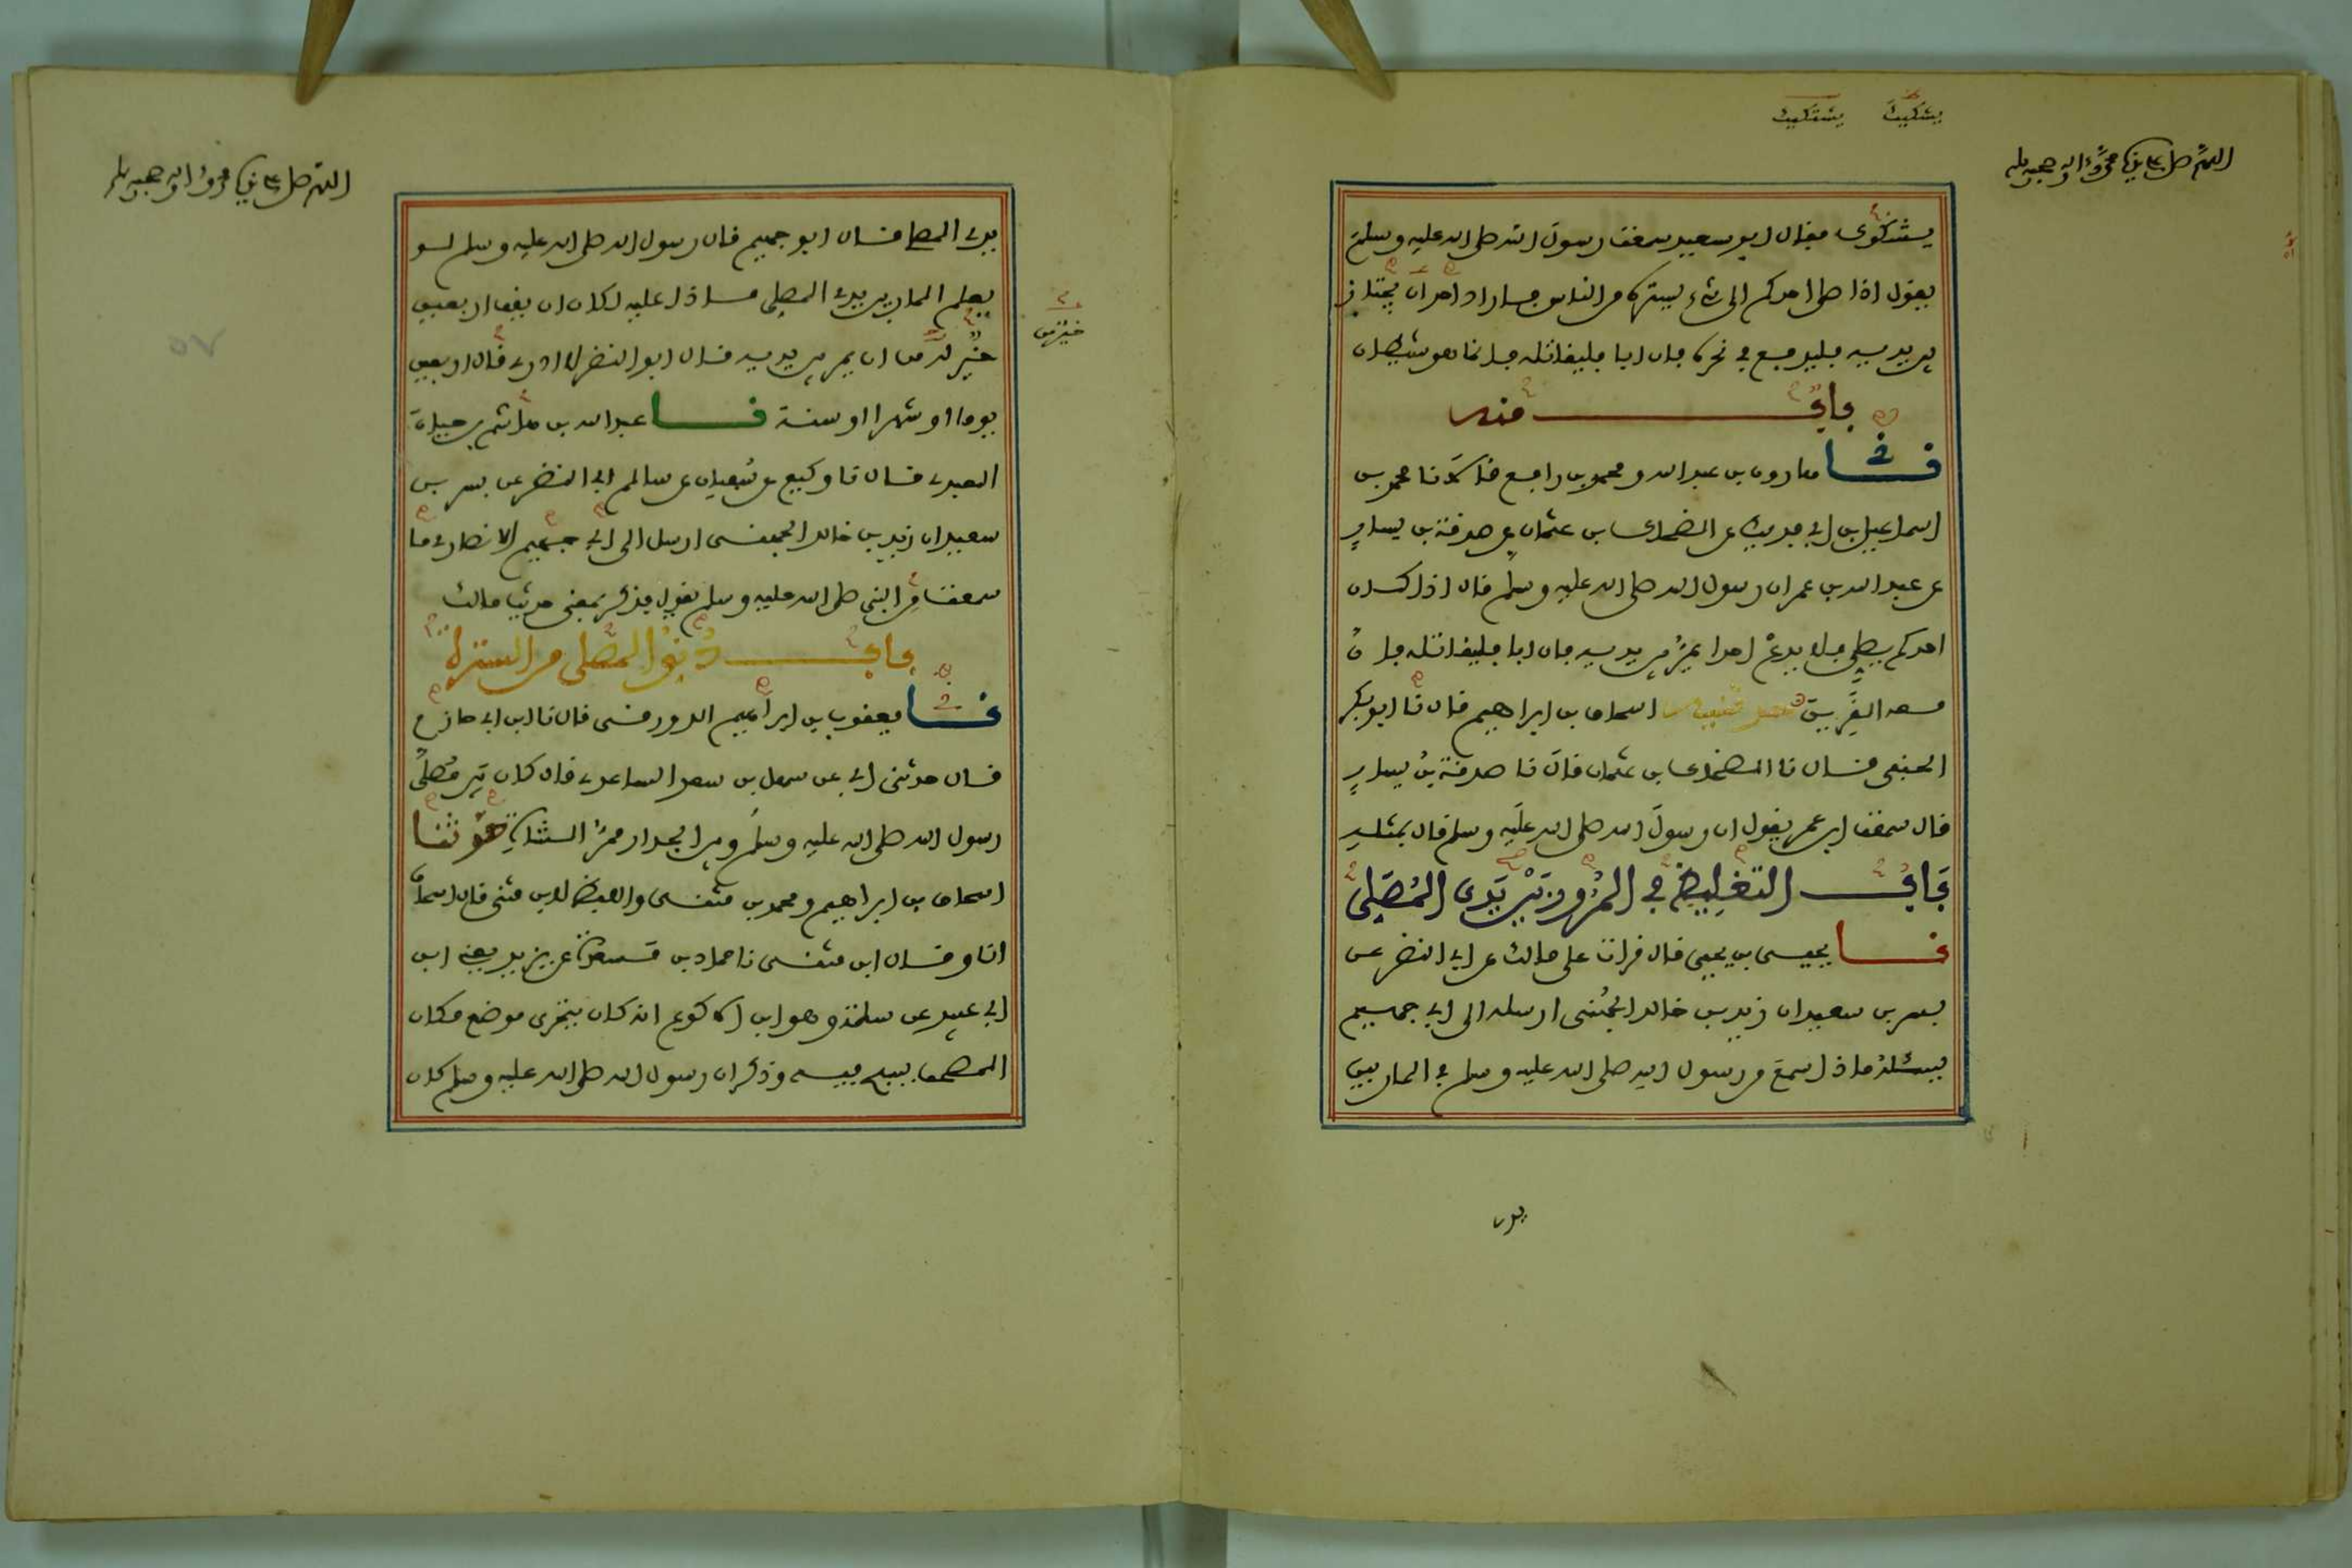 يشتكيك يشتكيك
اللهم صل على سيدنا محمد وءاله وصحبه وسلم
يشتكوك فقال ابو سعيد سمعت رسول الله صلى الله عليه وسلم
يقول اذا صلى احدكم الى شيء يستره من الناس فاراد احد ان يجتاز
بين يديه فليدفع في نحره فان ابا فليقاتله فانما هو شيطان
باب منه
نا هارون بن عبد الله ومحمد بن رافع قالا نا محمد بن
اسماعيل بن ابي فديك عن الضحاك بن عثمان عن صدقة بن يسار
عن عبد الله بن عمر ان رسول الله صلى الله عليه وسلم قال اذا كان
احدكم يصلي فلا يدع احدا يمر بين يديه فان ابا فليقاتله فان
معه القرين اسحاق بن ابراهيم قال نا ابو بكر
الحنفي قال نا الضحاك بن عثمان قال نا صدقة بن يسار
قال سمعت ابن عمر يقول ان رسول الله صلى الله عليه وسلم قال بمثله
باب التغليظ في المرور بين يدي المصلي
نا يحيى بن يحيى قال قرات على مالك عن ابي النضر عن
بسر بن سعيد ان زيد بن خالد الجهني ارسله الى ابي جهيم
يسئله ماذا سمع من رسول الله صلى الله عليه وسلم في المار بين
يدى
اللهم صل على سيدنا محمد وءاله وصحبه وسلم
يدي المصلي قال ابو جهيم قال رسول الله صلى الله عليه وسلم لو
يعلم المار بين يدي المصلي ماذا عليه لكان ان يقف اربعين
خير له من ان يمر بين يديه قال ابو النضر لا ادري قال اربعين
يوما او شهرا او سنة نا عبد الله بن هاشم بن حيان
العبدي قال نا وكيع عن سفيان عن سالم ابي النضر عن بسر بن
سعيد ان زيد بن خالد الجهني ارسل الى ابي جهيم الانصاري ما
سمعت من النبي صلى الله عليه وسلم يقول فذكر بمعنى حديث مالك
باب دنو المصلي من السترة
نا يعقوب بن ابراهيم الدورقي قال نا ابن ابي حازم
قال حدثني ابي عن سهل بن سعد الساعدي قال كان بين مصلى
رسول الله صلى الله عليه وسلم وبين الجدار ممر الشاة حدثنا
اسحاق بن ابراهيم ومحمد بن مثنى واللفظ لابن مثنى قال اسحاق
انا وقال ابن مثنى نا حماد بن مسعدة عن يزيد يعني ابن
ابي عبيد عن سلمة وهو ابن الاكوع انه كان يتحرى موضع مكان
المصحف يسبح فيه وذكر ان رسول الله صلى الله عليه وسلم كان